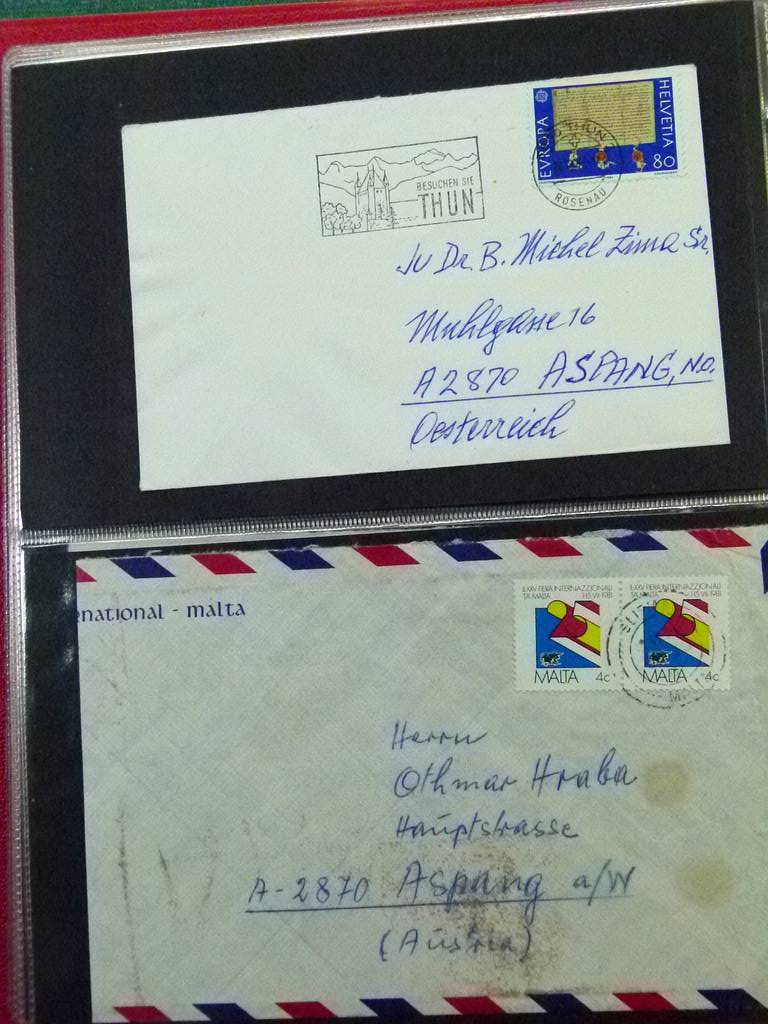 EVROPA
HELVETIA
80
THUN
ROSENAU
BESUCHEN SIE
THUN
JU Dr. B. Michel Zima Sr.
Muhlgasse 16
A 2870 ASPANG, N.O.
Oesterreich
national - malta
IL-XXV FIERA INTERNAZZJONALI
TA' MALTA 1-15 VII-1981
MALTA 4c
IL-XXV FIERA INTERNAZZJONALI
TA' MALTA 1-15 VII-1981
MALTA 4c
MALTA
Herrn
Othmar Hraba
Hauptstrasse
A-2870 Aspang a/W
(Austria)